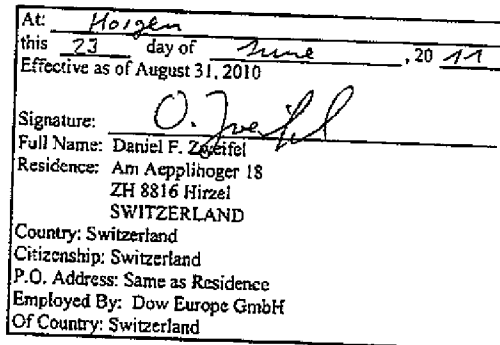 At: Horgen
this 23 day of June, 20 11
Effective as of August 31, 2010
Signature: D. Zweifel
Full Name: Daniel F. Zweifel
Residence: Am Aepplihoger 18
ZH 8816 Hirzel
SWITZERLAND
Country: Switzerland
Citizenship: Switzerland
P.O. Address: Same as Residence
Employed By: Dow Europe GmbH
Of Country: Switzerland